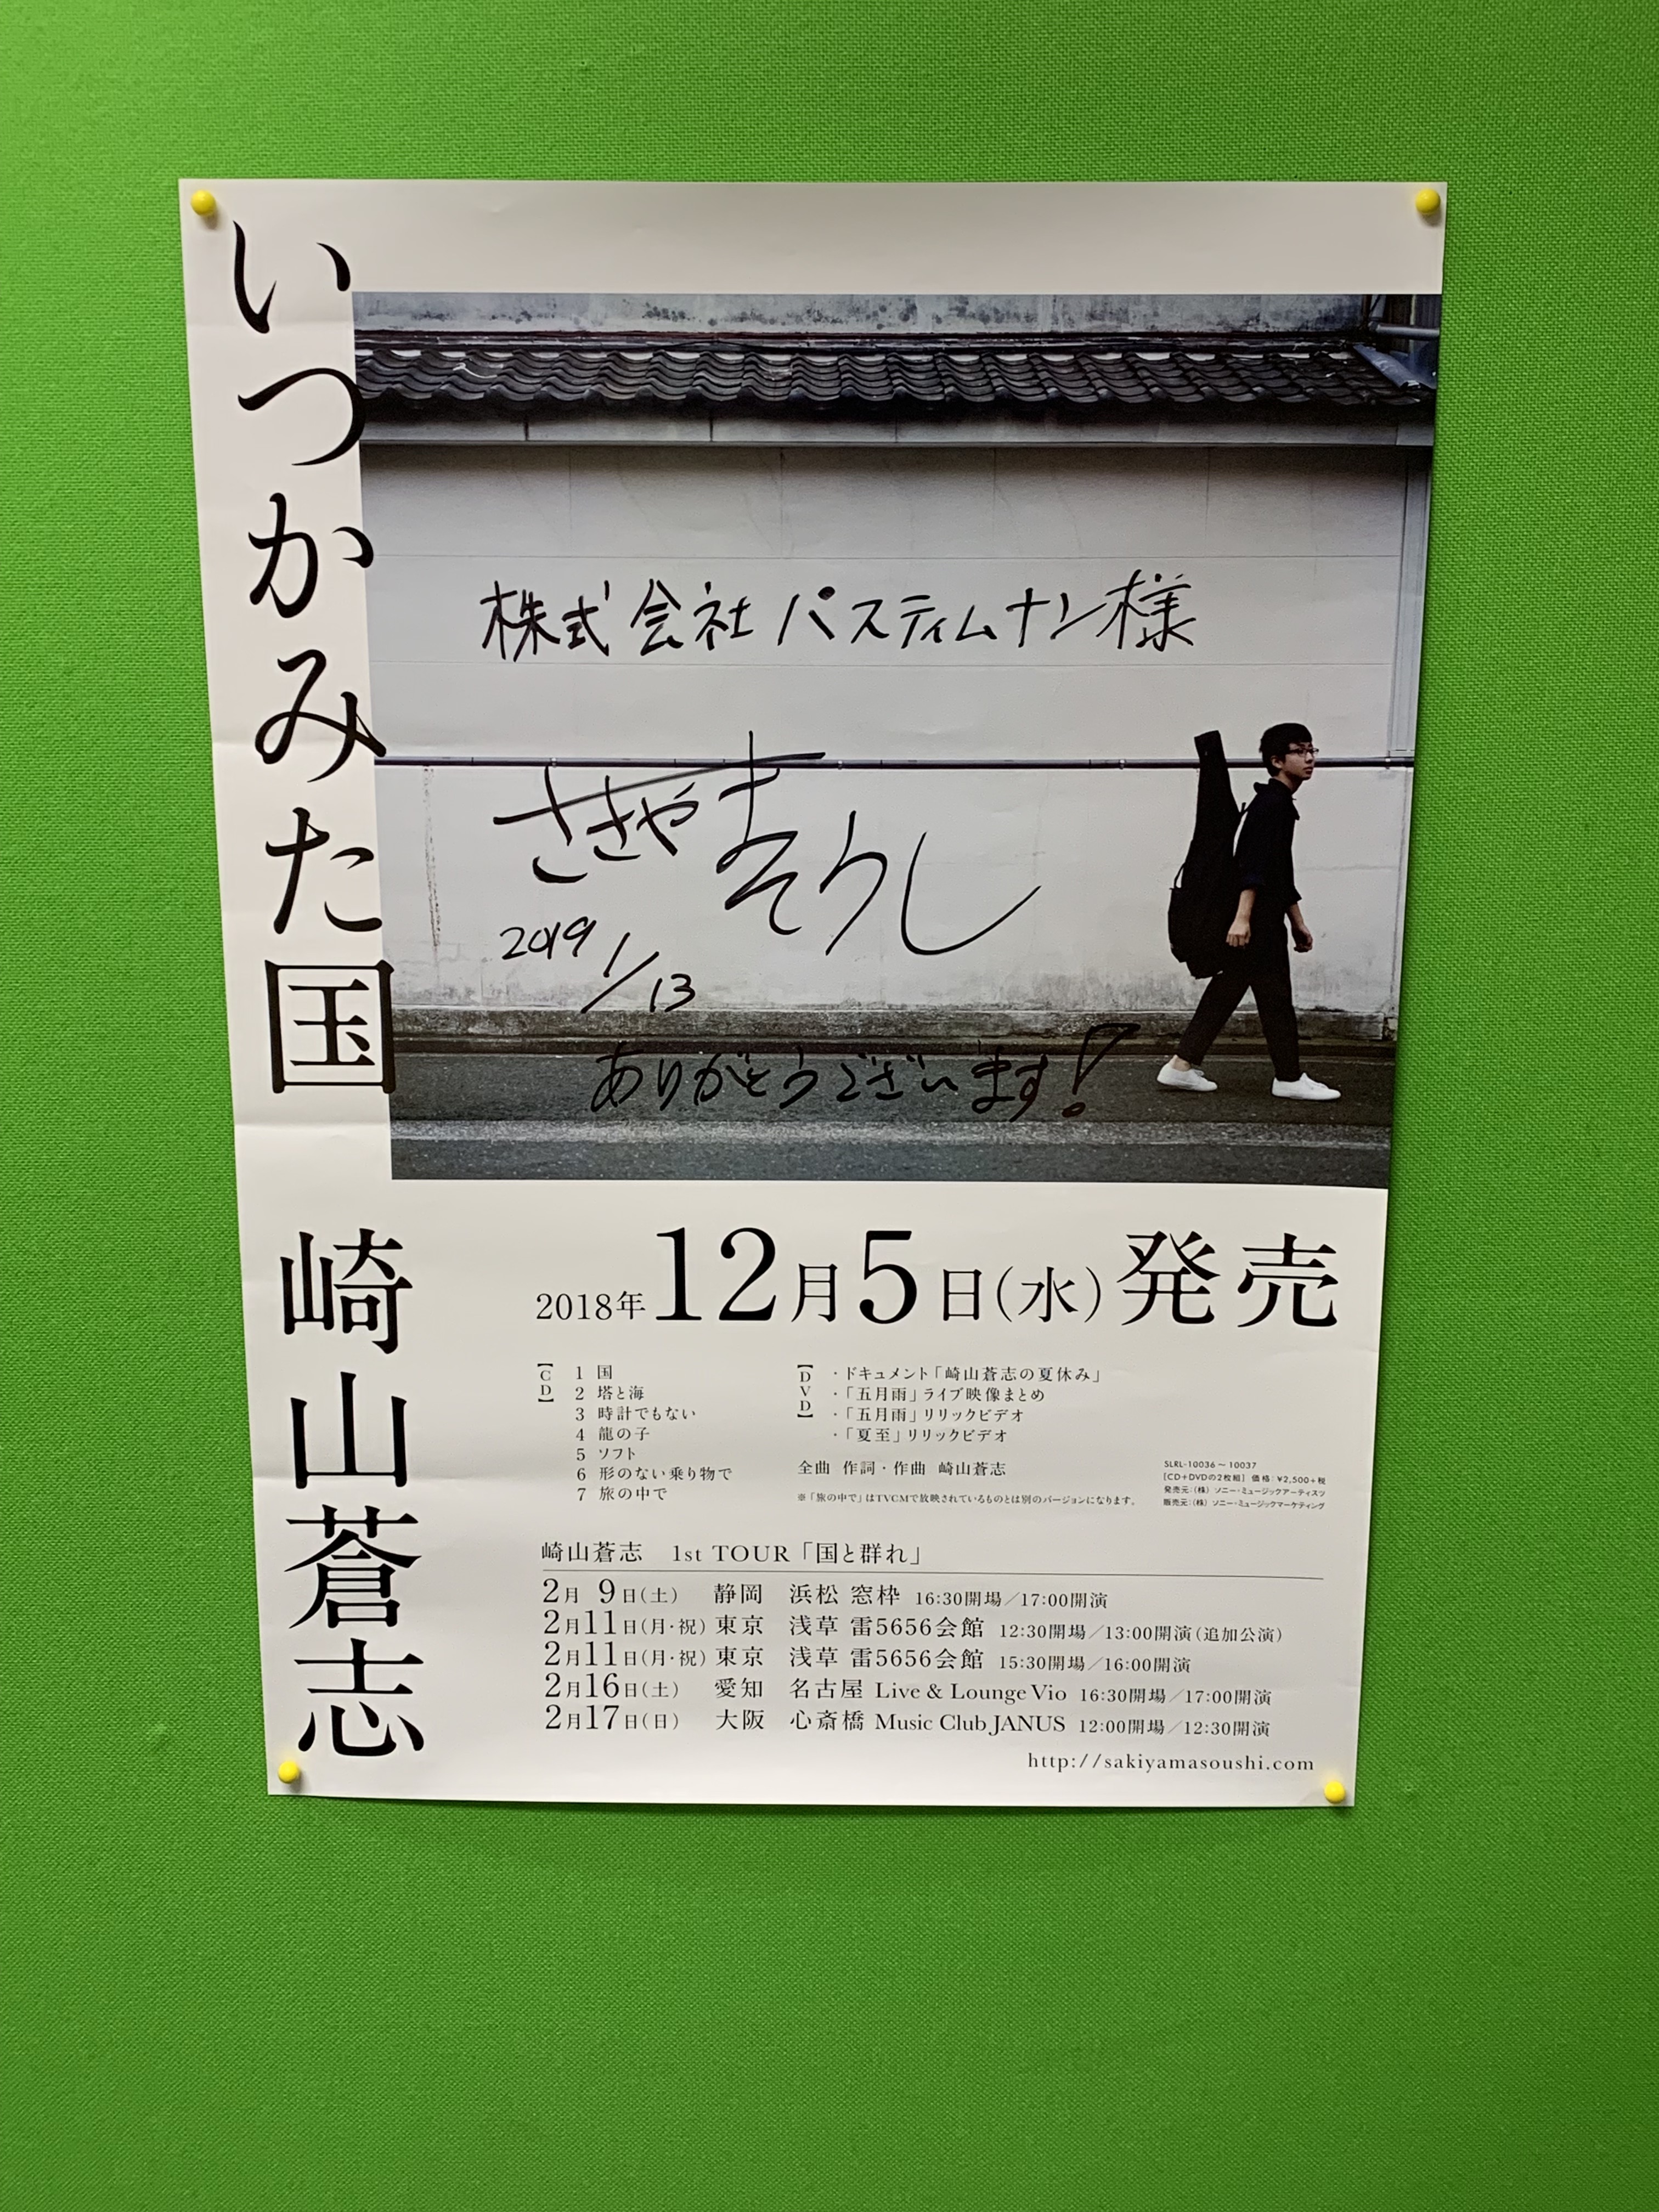 いつかみた国
崎山蒼志
株式会社パスティムナン様
さきやまそうし
2019 1/13
ありがとうございます!
2018年12月5日(水)発売
【CD】
1 国
2 塔と海
3 時計でもない
4 龍の子
5 ソフト
6 形のない乗り物で
7 旅の中で
【DVD】
・ドキュメント「崎山蒼志の夏休み」
・「五月雨」ライブ映像まとめ
・「五月雨」リリックビデオ
・「夏至」リリックビデオ
全曲 作詞・作曲 崎山蒼志
※「旅の中で」はTVCMで放映されているものとは別のバージョンになります。
SLRL-10036〜10037
[CD+DVDの2枚組] 価格:¥2,500+税
発売元:(株)ソニー・ミュージックアーティスツ
販売元:(株)ソニー・ミュージックマーケティング
崎山蒼志 1st TOUR「国と群れ」
2月 9日(土) 静岡 浜松 窓枠 16:30開場/17:00開演
2月11日(月・祝) 東京 浅草 雷5656会館 12:30開場/13:00開演(追加公演)
2月11日(月・祝) 東京 浅草 雷5656会館 15:30開場/16:00開演
2月16日(土) 愛知 名古屋 Live & Lounge Vio 16:30開場/17:00開演
2月17日(日) 大阪 心斎橋 Music Club JANUS 12:00開場/12:30開演
http://sakiyamasoushi.com